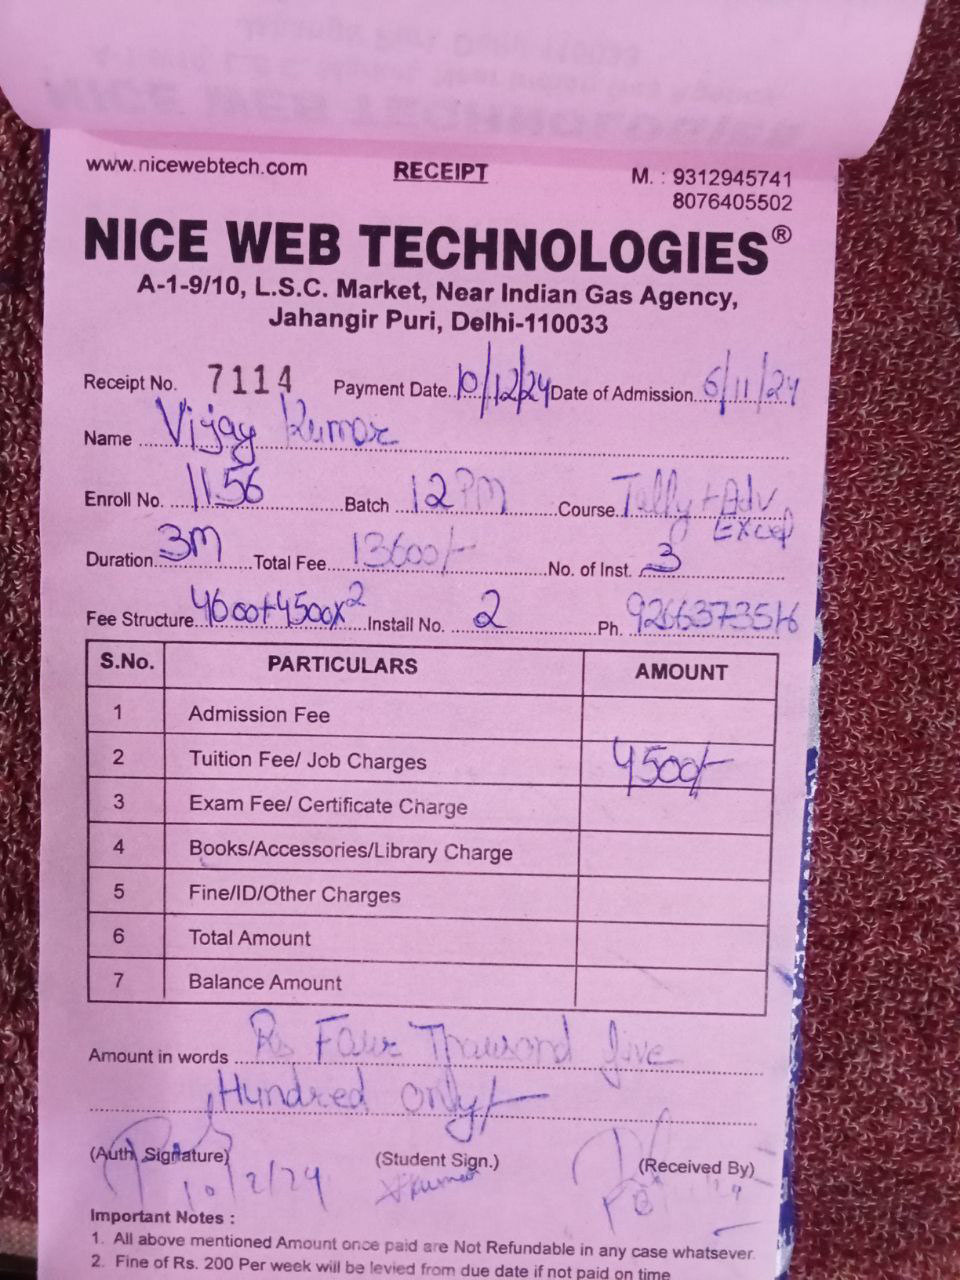 www.nicewebtech.com RECEIPT M. : 9312945741
8076405502
NICE WEB TECHNOLOGIES®
A-1-9/10, L.S.C. Market, Near Indian Gas Agency,
Jahangir Puri, Delhi-110033
Receipt No. 7114 Payment Date 10/12/24 Date of Admission 6/11/24
Name Vijay Kumar
Enroll No. 1156 Batch 12 PM Course Tally + Adv
Excel
Duration 3M Total Fee 13600/- No. of Inst. 3
Fee Structure 4600+4500x2 Install No. 2 Ph.
S.No. PARTICULARS AMOUNT
1 Admission Fee
2 Tuition Fee/ Job Charges 4500/-
3 Exam Fee/ Certificate Charge
4 Books/Accessories/Library Charge
5 Fine/ID/Other Charges
6 Total Amount
7 Balance Amount
Amount in words Rs Four Thousand five
Hundred only/-
(Auth. Signature) (Student Sign.) (Received By)
10/12/24 VKumar
Important Notes :
1. All above mentioned Amount once paid are Not Refundable in any case whatsever.
2. Fine of Rs. 200 Per week will be levied from due date if not paid on time